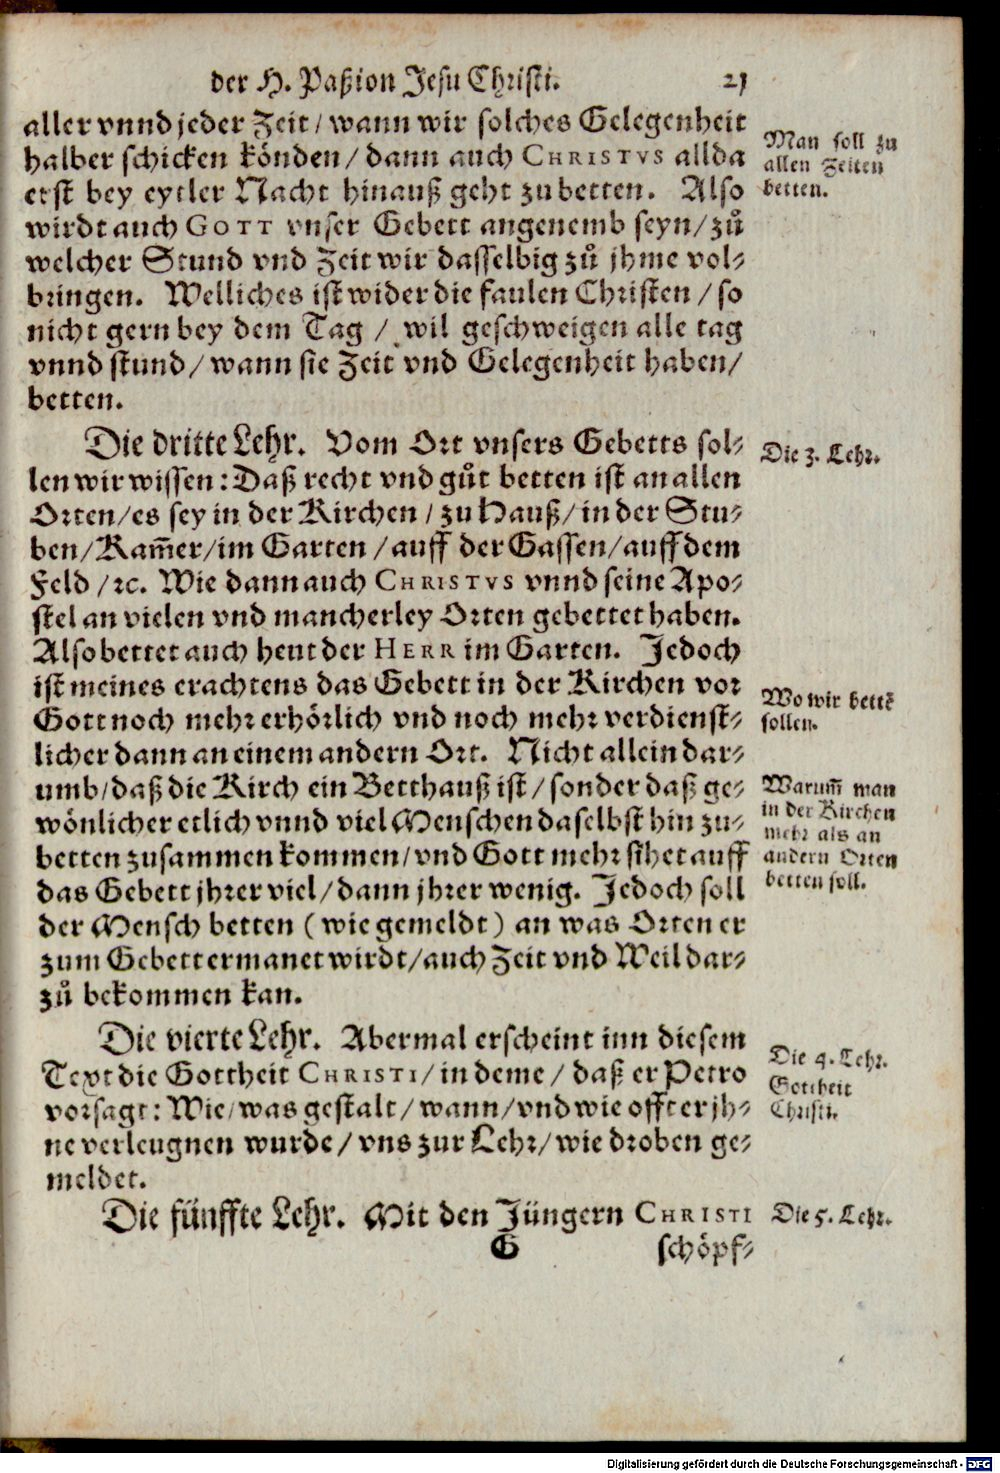 der H. Paßion Jesu Christi. 21
aller vnnd jeder Zeit / wann wir solches Gelegenheit
halber schicken könden / dann auch CHRISTVS allda
erst bey eytler Nacht hinauß geht zu betten. Also
wirdt auch GOTT vnser Gebett angenemb seyn / zů
welcher Stund vnd Zeit wir dasselbig zů jhme vol-
bringen. Welliches ist wider die faulen Christen / so
nicht gern bey dem Tag / wil geschweigen alle tag
vnnd stund / wann sie Zeit vnd Gelegenheit haben /
betten.
Man soll zu
allen Zeiten
betten.
Die dritte Lehr. Vom Ort vnsers Gebetts sol-
len wir wissen: Daß recht vnd gůt betten ist an allen
Orten / es sey in der Kirchen / zu Hauß / in der Stu-
ben / Kam̄er / im Garten / auff der Gassen / auff dem
Feld / ꝛc. Wie dann auch CHRISTVS vnnd seine Apo-
stel an vielen vnd mancherley Orten gebettet haben.
Also bettet auch heut der HERR im Garten. Jedoch
ist meines erachtens das Gebett in der Kirchen vor
Gott noch mehr erhörlich vnd noch mehr verdienst-
licher dann an einem andern Ort. Nicht allein dar-
umb / daß die Kirch ein Betthauß ist / sonder daß ge-
wönlicher etlich vnnd viel Menschen daselbst hin zu-
betten zusammen kommen / vnd Gott mehr sihet auff
das Gebett jhrer viel / dann jhrer wenig. Jedoch soll
der Mensch betten ( wie gemeldt ) an was Orten er
zum Gebett ermanet wirdt / auch Zeit vnd Weil dar-
zů bekommen kan.
Die 3. Lehr.
Wo wir bettē
sollen.
Warum̄ man
in der Kirchen
mehr als an
andern Orten
betten soll.
Die vierte Lehr. Abermal erscheint inn diesem
Text die Gottheit CHRISTI / in deme / daß er Petro
vorsagt: Wie / was gestalt / wann / vnd wie offt er jh-
ne verleugnen wurde / vns zur Lehr / wie droben ge-
meldet.
Die 4. Lehr.
Gottheit
Christi.
Die fünffte Lehr. Mit den Jüngern CHRISTI
Die 5. Lehr.
G schöpf-
Digitalisierung gefördert durch die Deutsche Forschungsgemeinschaft - DFG